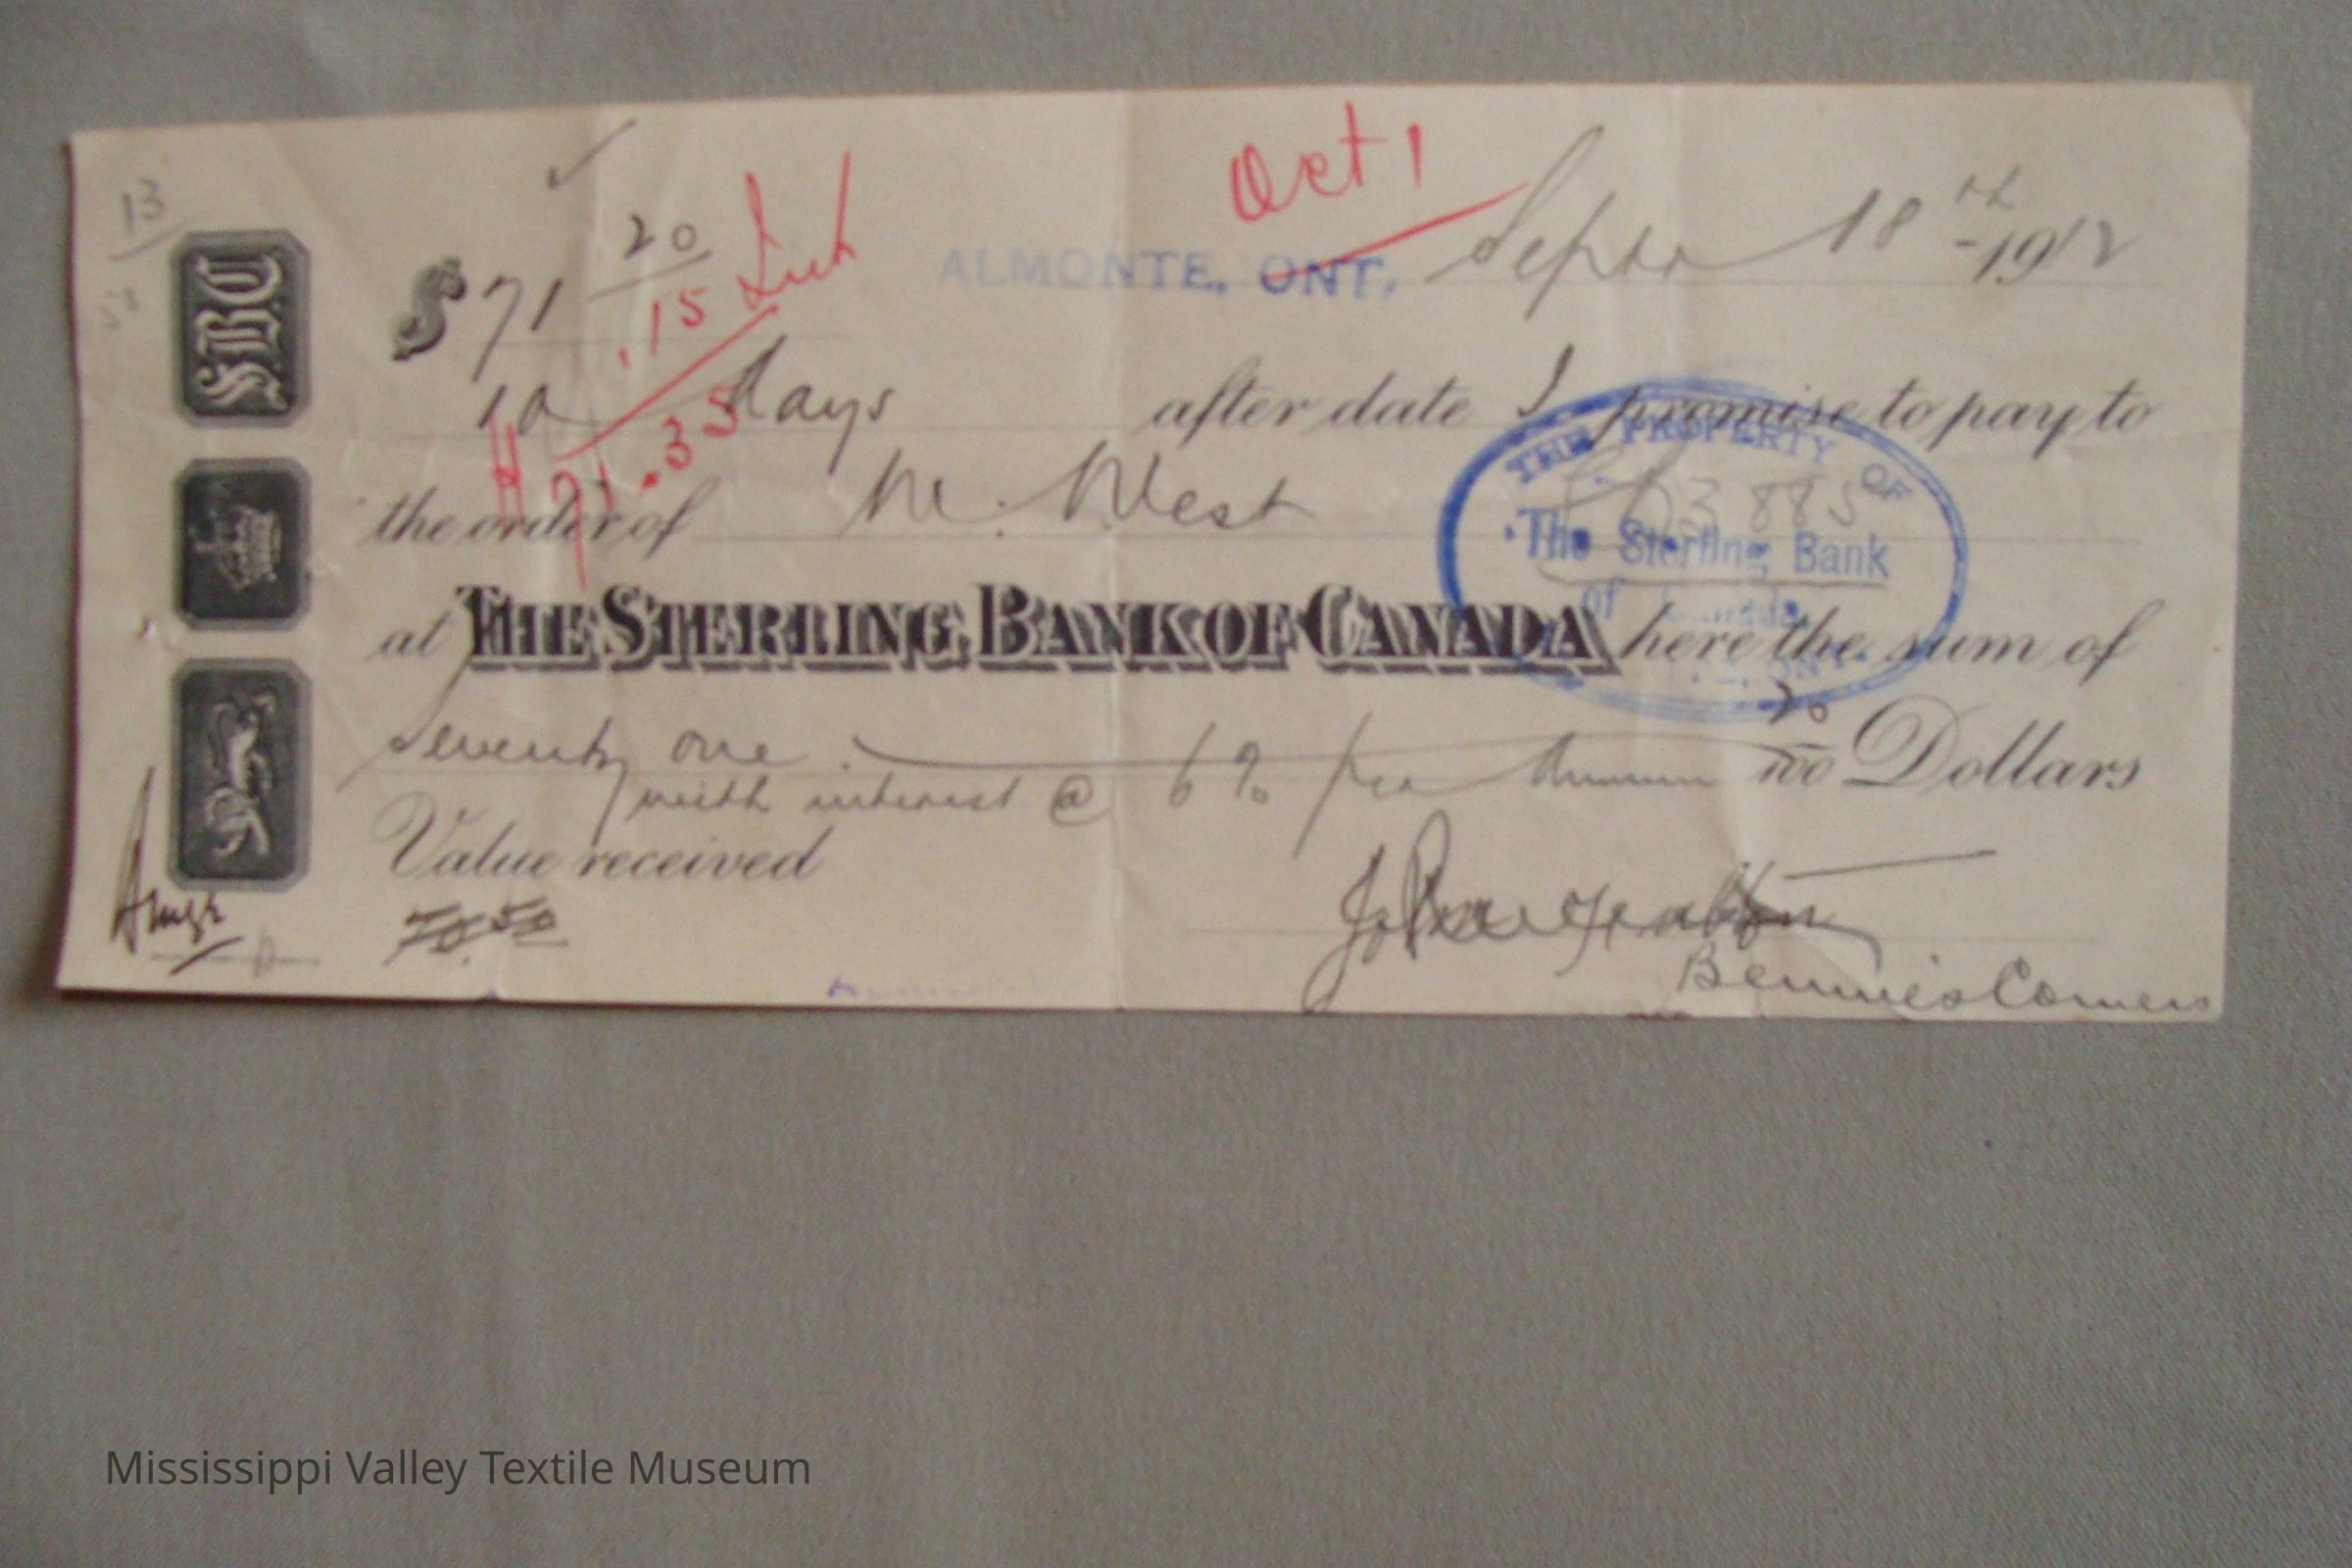 13
Oct 1
$71 20
ALMONTE. ONT. Septr 18th -1912
.15 Int
10 days after date I promise to pay to
71.35
the order of M. West
THE PROPERTY OF
The Sterling Bank
of Canada
at THE STERLING BANK OF CANADA here the sum of
seventy one 20/100 Dollars
with interest @ 6% per Annum
Value received
70.50
Bennies Corners
SBC
Mississippi Valley Textile Museum